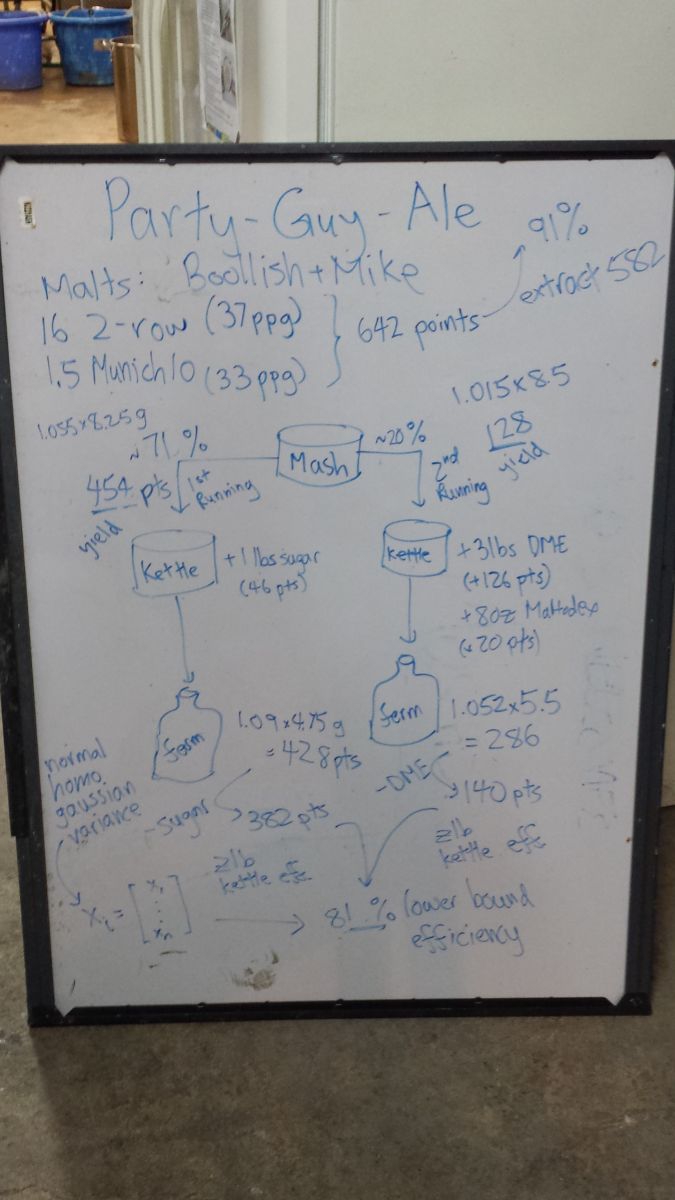 Party-Guy-Ale
Malts: Boollish + Mike
16 2-row (37ppg)
1.5 Munich 10 (33 ppg)
642 points
91%
extract 582
1.055x8.25g
~71 %
454 pts
yield
1st
Running
Mash
~20%
2nd
Running
1.015x8.5
128
yield
Kettle
+1 lbs sugar
(46 pts)
Kettle
+3lbs DME
(+126 pts)
+8oz Maltodex
(+20 pts)
ferm
1.09x4.75 g
= 428pts
ferm
1.052x5.5
= 286
-sugar
382 pts
-DME
140 pts
normal
homo
gaussian
variance
≥lb
kettle eff
≥lb
kettle eff
Xi = [x1 : xn]
81 % lower bound
efficiency